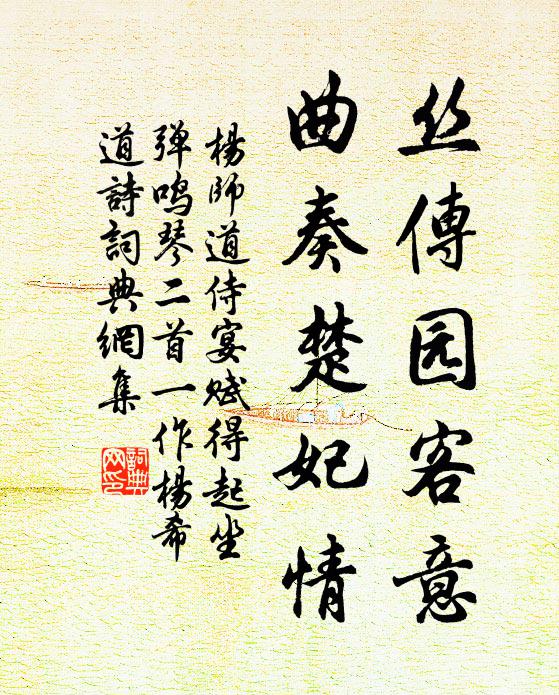 丝傳园客意
曲奏楚妃情
楊師道侍宴赋得起坐
弹鸣琴二首一作楊希
道詩詞典網集
詞典網印